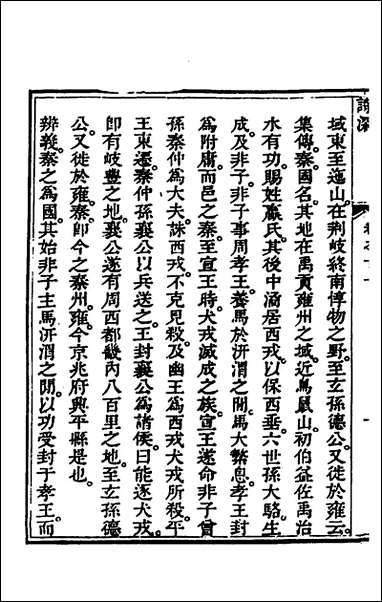 詩深
域東至迤山。在荆岐終南惇物之野。至玄孫德公。又徙於雍云。
集傳。秦國名。其地在禹貢雍州之域。近鳥鼠山。初伯益佐禹治
水有功。賜姓嬴氏。其後中潏居西戎。以保西垂。六世孫大駱生
成及非子。非子事周孝王。養馬於汧渭之間。馬大繁息。孝王封
爲附庸。而邑之秦。至宣王時。犬戎滅成之族。宣王遂命非子曾
孫秦仲爲大夫。誅西戎。不克見殺。及幽王爲西戎犬戎所殺。平
王東遷。秦仲孫襄公以兵送之。王封襄公爲諸侯。曰能逐犬戎。
卽有岐豐之地。襄公遂有周西都畿內八百里之地。至玄孫德
公。又徙於雍。秦卽今之秦州。雍今京兆府興平縣是也。
辨義。秦之爲國。其始非子主馬汧渭之閒。以功受封于孝王。而